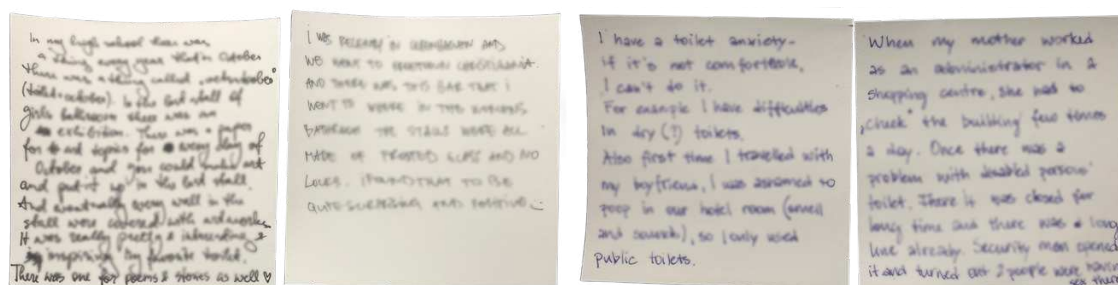 In my high school there was
a thing every year that in October
there was a thing called "octoilober"
(toilet + october). In the last stall of
girls bathroom there was an
exhibition. There was a paper
for art topics for every day of
October and you could make art
and put it up in the last stall.
And eventually every wall in the
stall were covered with artworks.
It was really pretty & interesting &
inspiring. My favorite toilet.
There was one for poems & stories as well ♡
I WAS RECENTLY IN COPENHAGEN AND
WE WENT TO CHRISTIANIA.
AND THERE WAS THIS BAR THAT I
WENT TO WHERE IN THE WOMENS
BATHROOM THE STALLS WERE ALL
MADE OF FROSTED GLASS AND NO
LOCKS. I FOUND THAT TO BE
QUITE SURPRISING AND POSITIVE :)
I have a toilet anxiety.
if it's not comfortable,
I can't do it.
For example I have difficulties
in dry (?) toilets.
Also first time I travelled with
my boyfriend, I was ashamed to
poop in our hotel room (smell
and sounds), so I only used
public toilets.
When my mother worked
as an administrator in a
shopping centre, she had to
„check" the building few times
a day. Once there was a
problem with disabled persons'
toilet. There it was closed for
long time and there was a long
line already. Security men opened
it and turned out 2 people were having
sex there